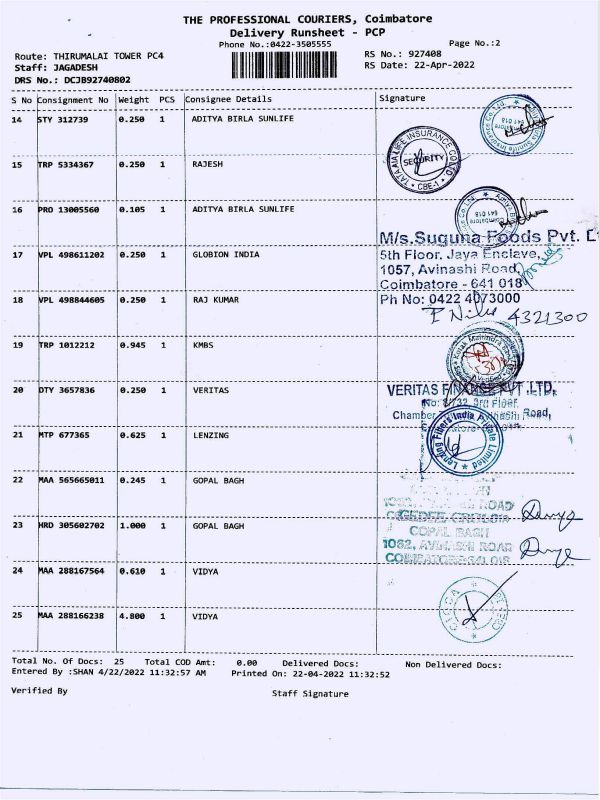 THE PROFESSIONAL COURIERS, Coimbatore
Delivery Runsheet - PCP
Phone No.:0422-3505555
Page No.:2
Route: THIRUMALAI TOWER PC4
RS No.: 927408
Staff: JAGADESH
RS Date: 22-Apr-2022
DRS No.: DCJB92740802
S No Consignment No Weight PCS Consignee Details Signature
14 STY 312739 0.250 1 ADITYA BIRLA SUNLIFE
TATA AIA LIFE INSURANCE CO LTD
SECURITY
* CBE-1 *
15 TRP 5334367 0.250 1 RAJESH
16 PRO 13005560 0.105 1 ADITYA BIRLA SUNLIFE
M/s.Suguna Foods Pvt. L
17 VPL 498611202 0.250 1 GLOBION INDIA
5th Floor, Jaya Enclave,
1057, Avinashi Road,
Coimbatore - 641 018
18 VPL 498844605 0.250 1 RAJ KUMAR
Ph No: 0422 4073000
4321300
19 TRP 1012212 0.945 1 KMBS
20 DTY 3657836 0.250 1 VERITAS
VERITAS FINANCE PVT .LTD,
3rd Floor
Chamber Avinashi Road,
21 MTP 677365 0.625 1 LENZING
Lenzing Fibers India Private Limited
22 MAA 565665011 0.245 1 GOPAL BAGH
ROAD
23 HRD 305602702 1.000 1 GOPAL BAGH
GOPAL BAGH
1062, AVINASHI ROAD
COIMBATORE-641 018
24 MAA 288167564 0.610 1 VIDYA
25 MAA 288166238 4.800 1 VIDYA
Total No. Of Docs: 25 Total COD Amt: 0.00 Delivered Docs: Non Delivered Docs:
Entered By :SHAN 4/22/2022 11:32:57 AM Printed On: 22-04-2022 11:32:52
Verified By Staff Signature